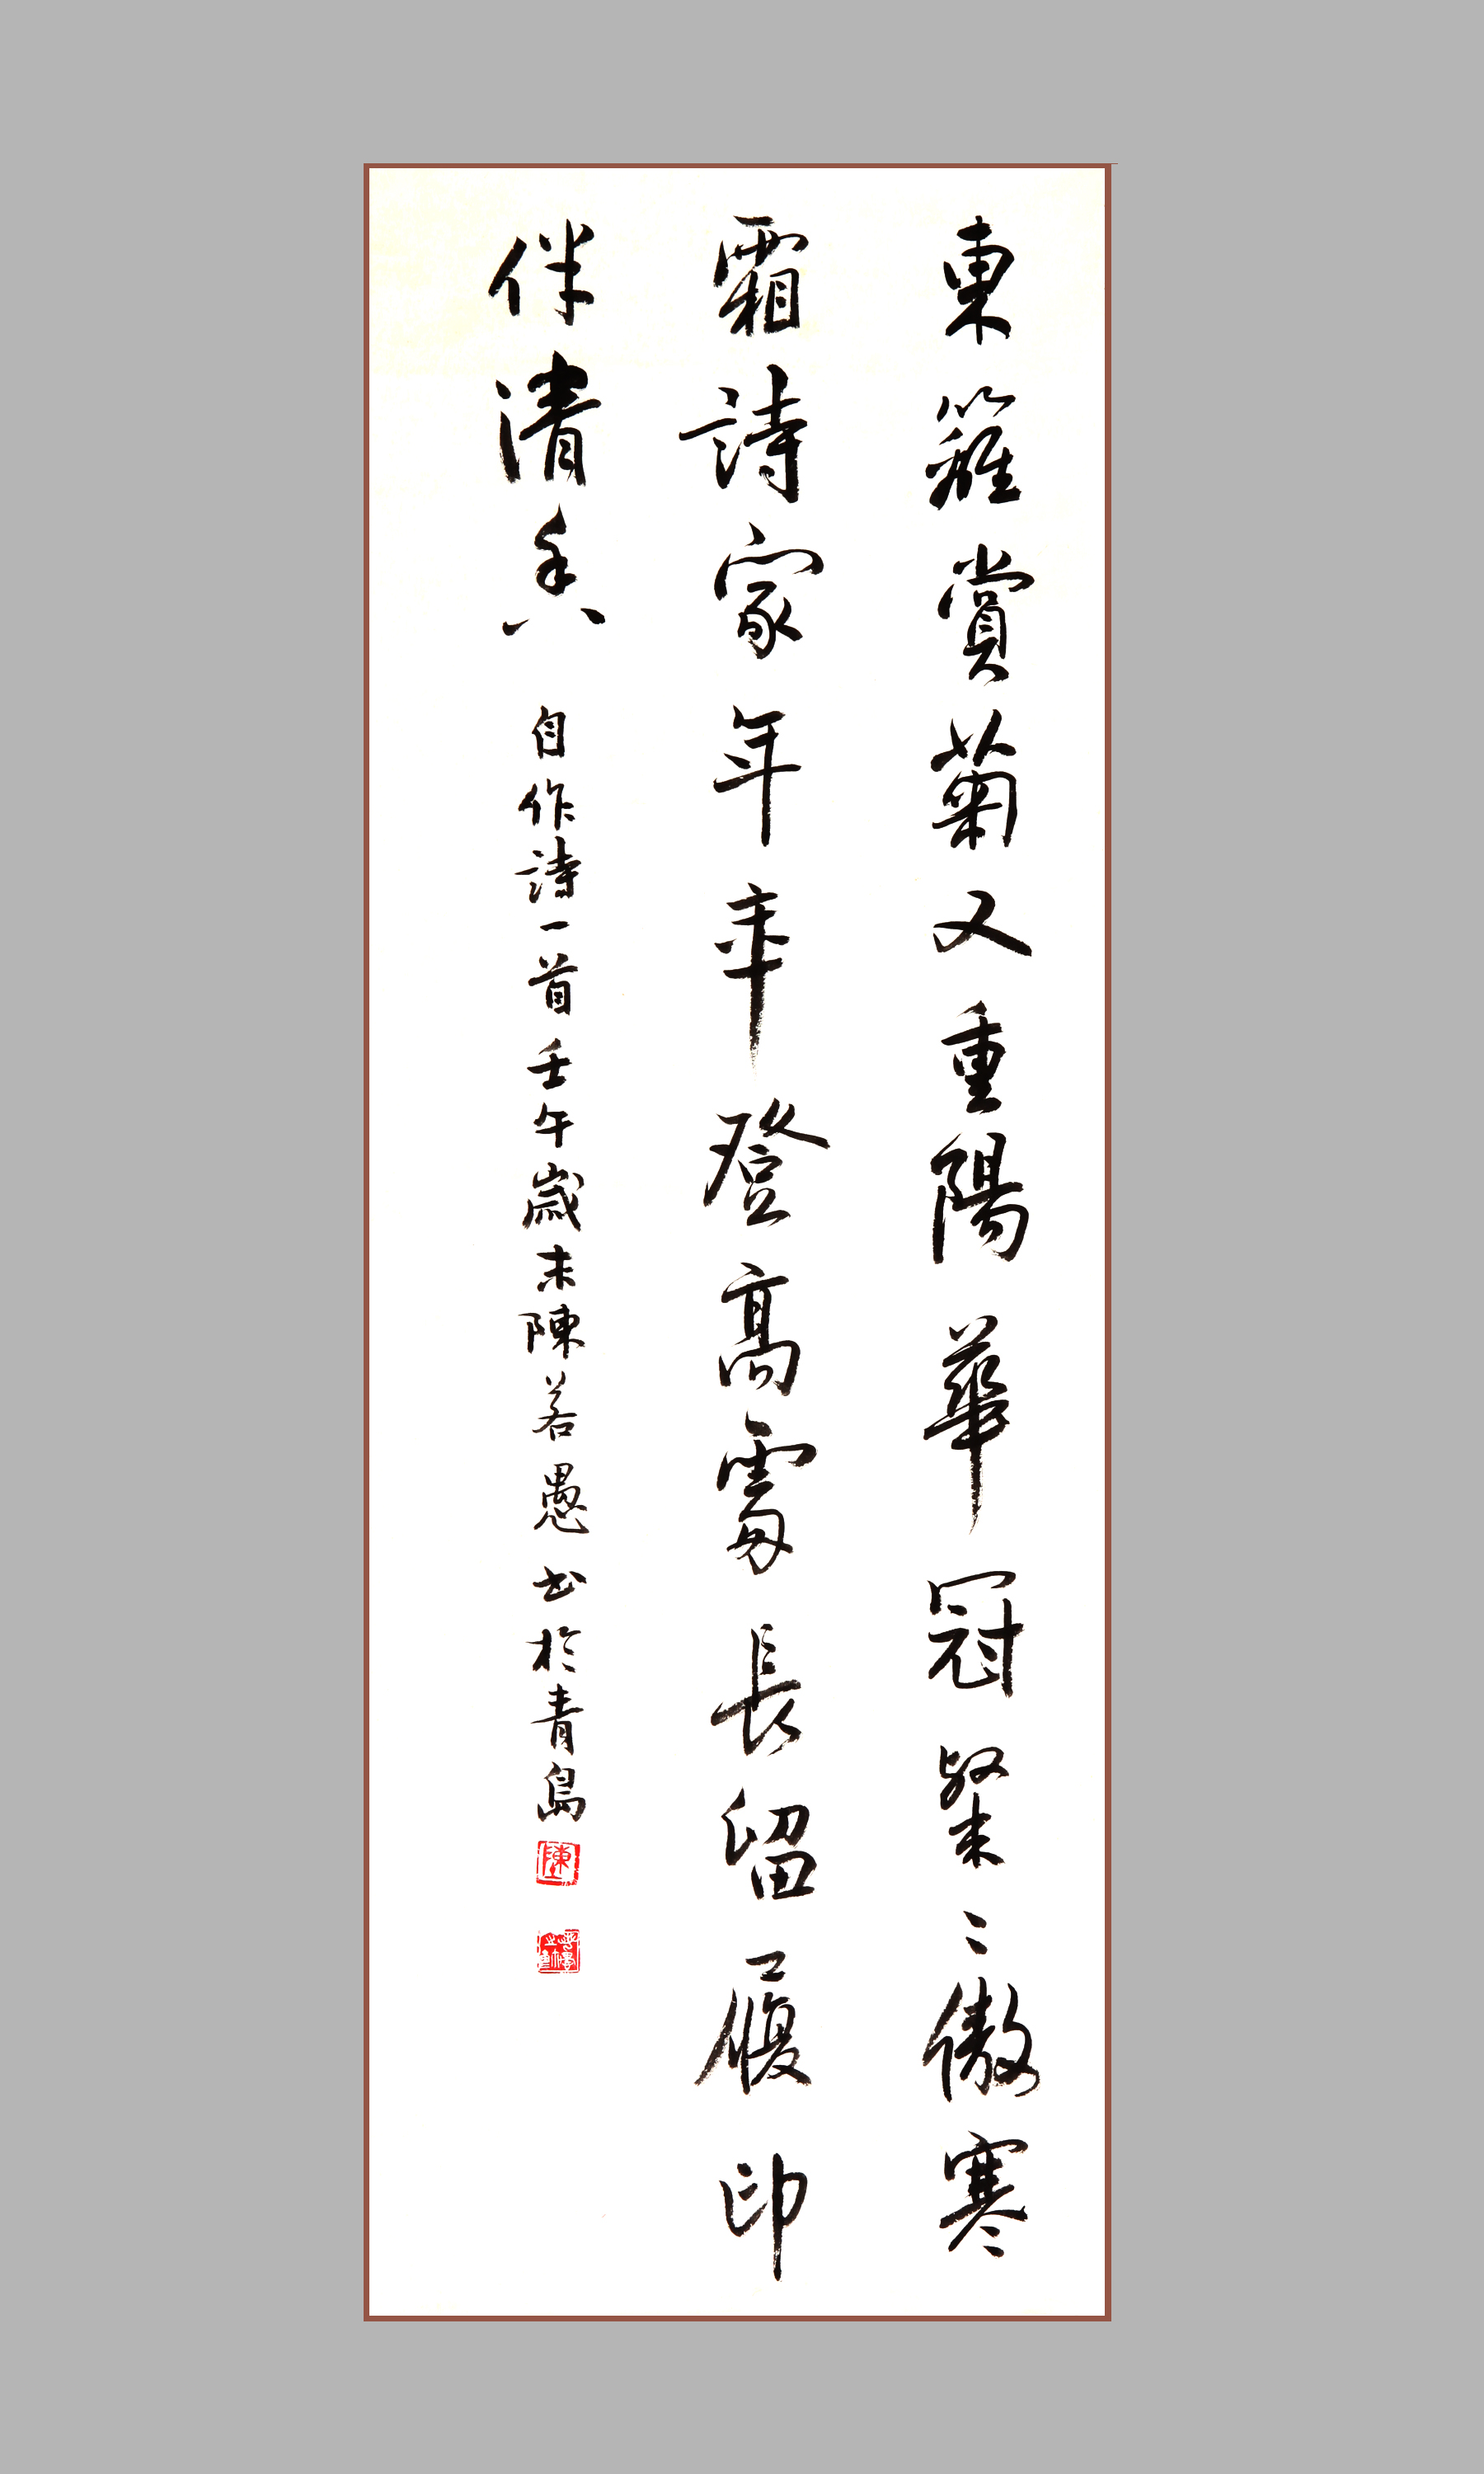 東籬賞菊又重陽華冠粲〻傲寒
霜詩家年年登高處長留屐印
伴清香
自作詩一首壬午歲末陳若愚書於青島
陳